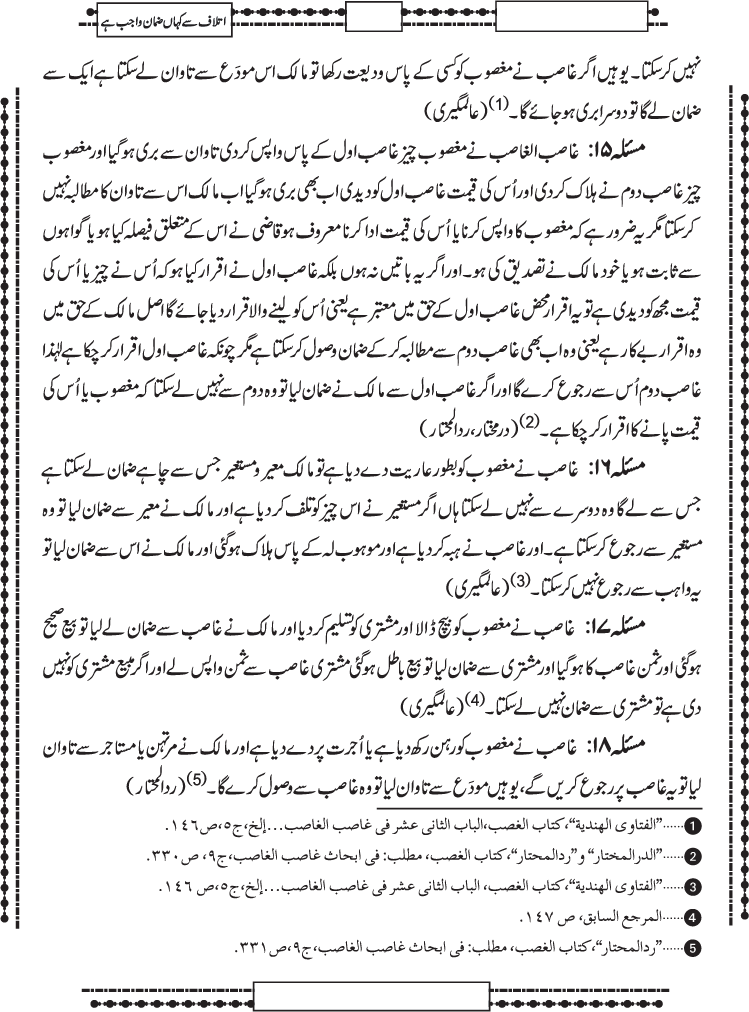 اتلاف سے کہاں ضمان واجب ہے
نہیں کرسکتا۔ یوہیں اگر غاصب نے مغصوب کو کسی کے پاس ودیعت رکھا تو مالک اس مودَع سے تاوان لے سکتا ہے ایک سے
ضمان لے گا تو دوسرا بری ہوجائے گا۔(1) (عالمگیری)
مسئلہ ۱۵: غاصب الغاصب نے مغصوب چیز غاصب اول کے پاس واپس کردی تاوان سے بری ہوگیا اور مغصوب
چیز غاصب دوم نے ہلاک کردی اور اُس کی قیمت غاصب اول کو دیدی اب بھی بری ہوگیا اب مالک اس سے تاوان کا مطالبہ نہیں
کرسکتا مگر یہ ضرور ہے کہ مغصوب کا واپس کرنا یا اُس کی قیمت ادا کرنا معروف ہو قاضی نے اس کے متعلق فیصلہ کیا ہو یا گواہوں
سے ثابت ہو یا خود مالک نے تصدیق کی ہو۔ اور اگر یہ باتیں نہ ہوں بلکہ غاصب اول نے اقرار کیا ہو کہ اُس نے چیز یا اُس کی
قیمت مجھ کو دیدی ہے تو یہ اقرار محض غاصب اول کے حق میں معتبر ہے یعنی اُس کو لینے والا قرار دیا جائے گا اصل مالک کے حق میں
وہ اقرار بے کار ہے یعنی وہ اب بھی غاصب دوم سے مطالبہ کرکے ضمان وصول کرسکتا ہے مگر چونکہ غاصب اول اقرار کرچکا ہے لہٰذا
غاصب دوم اُس سے رجوع کرے گا اور اگر غاصب اول سے مالک نے ضمان لیا تو وہ دوم سے نہیں لے سکتا کہ مغصوب یا اُس کی
قیمت پانے کا اقرار کرچکا ہے۔(2) (درمختار، ردالمحتار)
مسئلہ ۱۶: غاصب نے مغصوب کو بطور عاریت دے دیا ہے تو مالک معیر و مستعیر جس سے چاہے ضمان لے سکتا ہے
جس سے لے گا وہ دوسرے سے نہیں لے سکتا ہاں اگر مستعیر نے اس چیز کو تلف کردیا ہے اور مالک نے معیر سے ضمان لیا تو وہ
مستعیر سے رجوع کرسکتا ہے۔ اور غاصب نے ہبہ کردیا ہے اور موہوب لہ کے پاس ہلاک ہوگئی اور مالک نے اس سے ضمان لیا تو
یہ واہب سے رجوع نہیں کرسکتا۔(3) (عالمگیری)
مسئلہ ۱۷: غاصب نے مغصوب کو بیچ ڈالا اور مشتری کو تسلیم کردیا اور مالک نے غاصب سے ضمان لے لیا تو بیع صحیح
ہوگئی اور ثمن غاصب کا ہوگیا اور مشتری سے ضمان لیا تو بیع باطل ہوگئی مشتری غاصب سے ثمن واپس لے اور اگر مبیع مشتری کو نہیں
دی ہے تو مشتری سے ضمان نہیں لے سکتا۔(4) (عالمگیری)
مسئلہ ۱۸: غاصب نے مغصوب کو رہن رکھ دیا ہے یا اُجرت پر دے دیا ہے اور مالک نے مرتہن یا مستاجر سے تاوان
لیا تو یہ غاصب پر رجوع کریں گے، یوہیں مودَع سے تاوان لیا تو وہ غاصب سے وصول کرے گا۔(5) (ردالمحتار)
1......”الفتاوی الھندیة“،کتاب الغصب،الباب الثانی عشر فی غاصب الغاصب...إلخ،ج٥،ص١٤٦.
2......”الدرالمختار“ و”ردالمحتار“،کتاب الغصب، مطلب: فی ابحاث غاصب الغاصب،ج٩، ص٣٣٠.
3......”الفتاوی الھندیة“،کتاب الغصب، الباب الثانی عشر فی غاصب الغاصب...إلخ،ج٥،ص ١٤٦.
4......المرجع السابق، ص ١٤٧.
5......”ردالمحتار“،کتاب الغصب، مطلب: فی ابحاث غاصب الغاصب،ج٩،ص٣٣١.